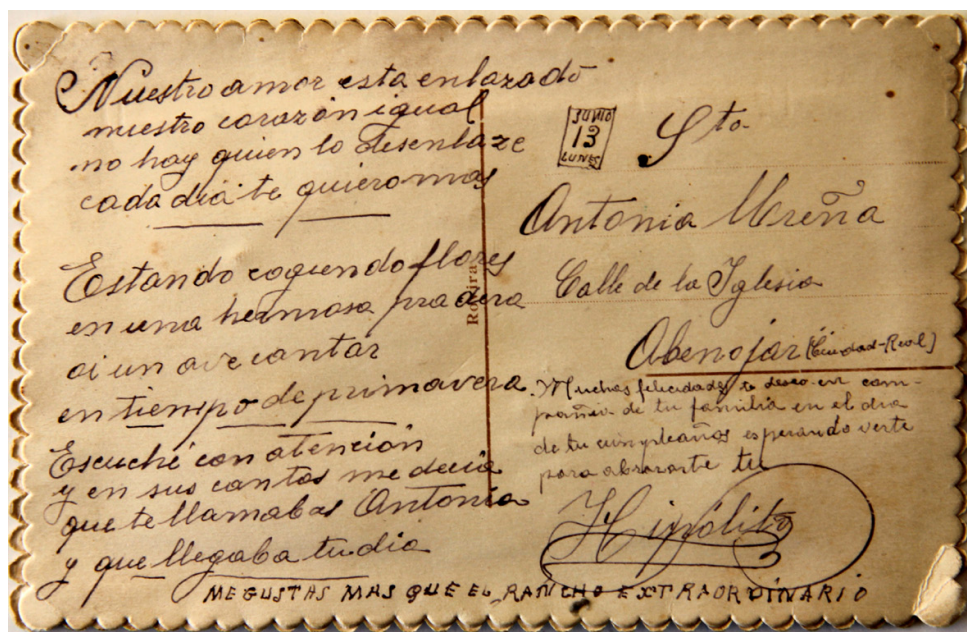 Nuestro amor esta enlazado
nuestro corazón igual
no hay quien lo desenlaze
cada dia te quiero mas
Estando cogiendo flores
en una hermosa pradera
oi un ave cantar
en tiempo de primavera
Escuché con atención
y en sus cantos me decia
que te llamabas Antonia
y que llegaba tu dia
JUNIO
13
LUNES
Sta.
Antonia Ureña
Calle de la Iglesia
Abenojar (Ciudad-Real)
Muchas felicidades te deseo en com-
pañia de tu familia en el dia
de tu cumpleaños esperando verte
para abrazarte tu
Hipólito
ME GUSTAS MAS QUE EL RANCHO EXTRAORDINARIO